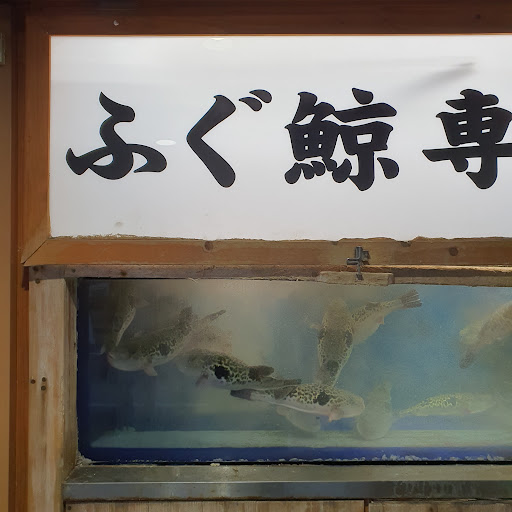 ふぐ鯨専